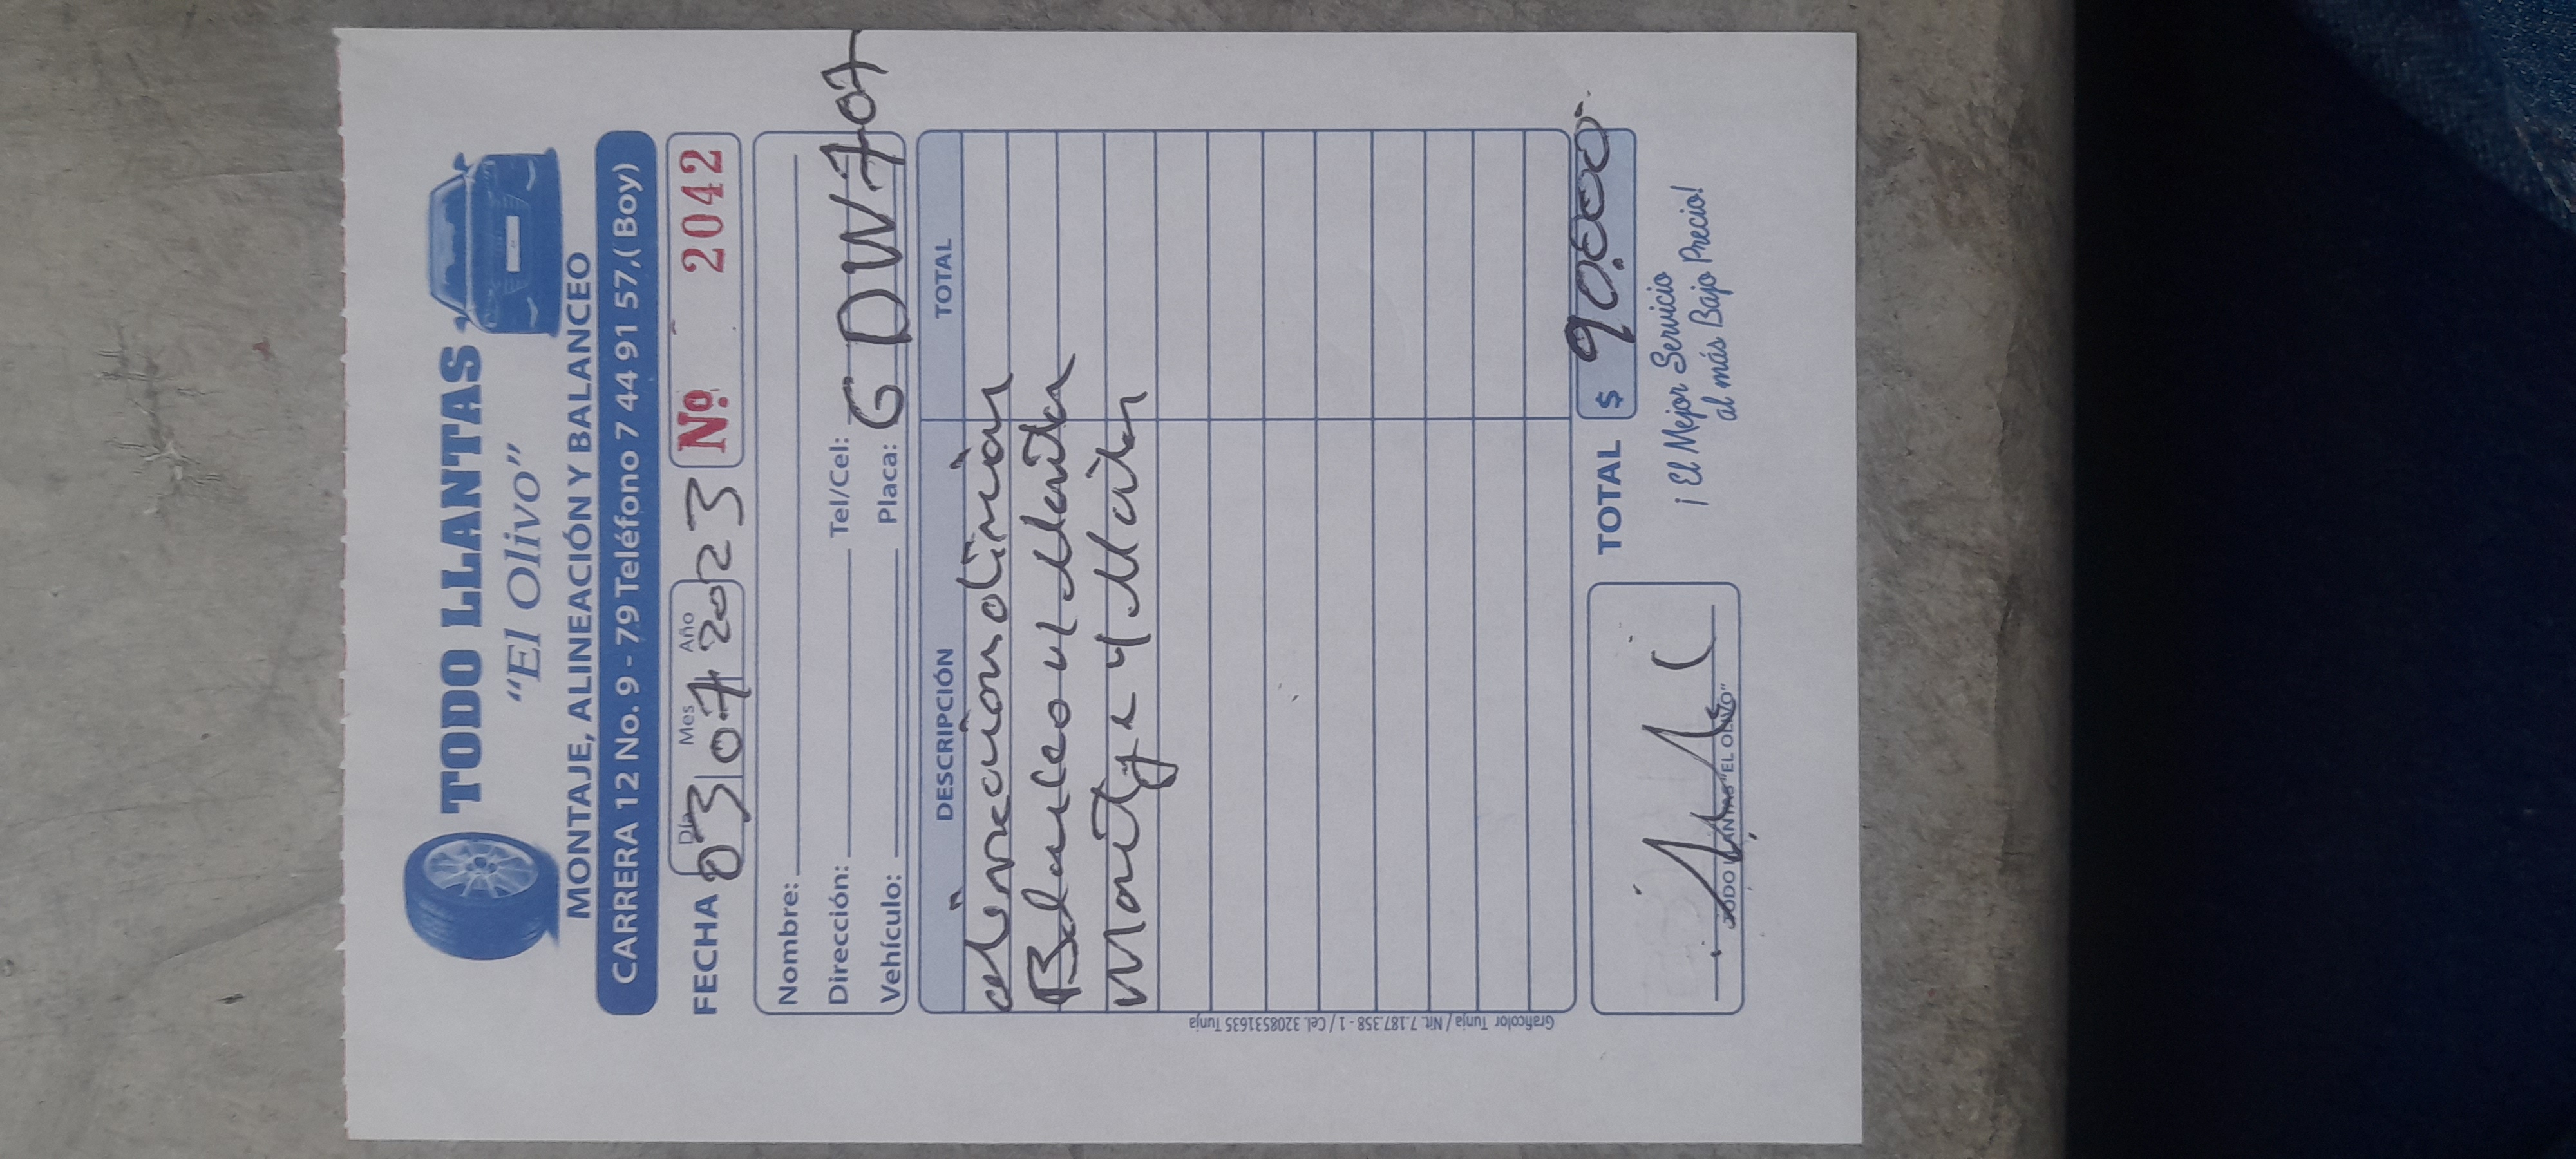 TODO LLANTAS
"El Olivo"
MONTAJE, ALINEACIÓN Y BALANCEO
CARRERA 12 No. 9 - 79 Teléfono 7 44 91 57,( Boy)
FECHA Día Mes Año 03 07 2023 No. 2042
Nombre:
Dirección: Tel/Cel:
Vehículo: Placa: GDW707
DESCRIPCIÓN TOTAL
Balanceo 4
4
TOTAL $ 90.000
TODO LLANTAS "EL OLIVO"
¡ El Mejor Servicio
al más Bajo Precio!
Graficolor Tunja / Nit. 7.187.358 - 1 / Cel. 3208531635 Tunja